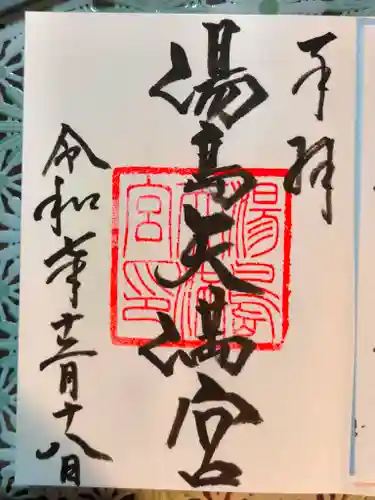 奉拝
湯島天満宮
令和 年十二月十八日
湯島
天満
宮印